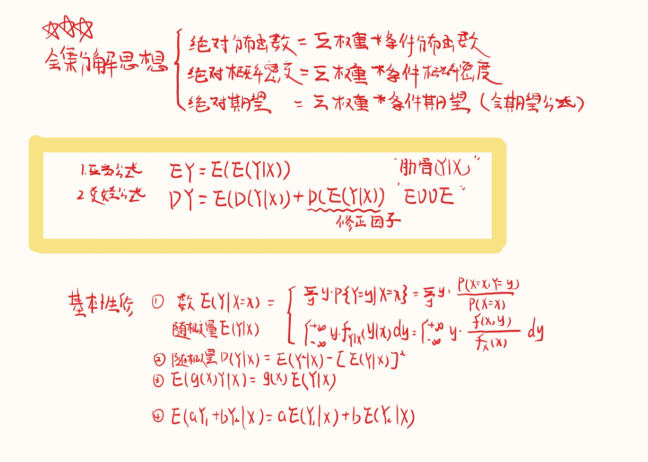 ☆☆☆
全集分解思想
绝对分布函数=Σ权重*条件分布函数
绝对概率密度=Σ权重*条件概率密度
绝对期望 =Σ权重*条件期望(全期望公式)
1. 公式 EY=E(E(Y|X)) "肋骨(Y|X)"
2. 公式 DY=E(D(Y|X))+D(E(Y|X)) "EDDE"
修正因子
基本性质 ① 数 E(Y|X=x) = { Σ y·P{Y=y|X=x}=Σ y· P(X=x,Y=y)/P(X=x)
随机量E(Y|X) ∫_{-∞}^{+∞} y·f_{Y|X}(y|x)dy=∫_{-∞}^{+∞} y· f(x,y)/f_X(x) dy
② 随机量D(Y|X)=E(Y²|X)-[E(Y|X)]²
③ E(g(X)Y|X)=g(X)E(Y|X)
④ E(aY₁+bY₂|X)=aE(Y₁|X)+bE(Y₂|X)